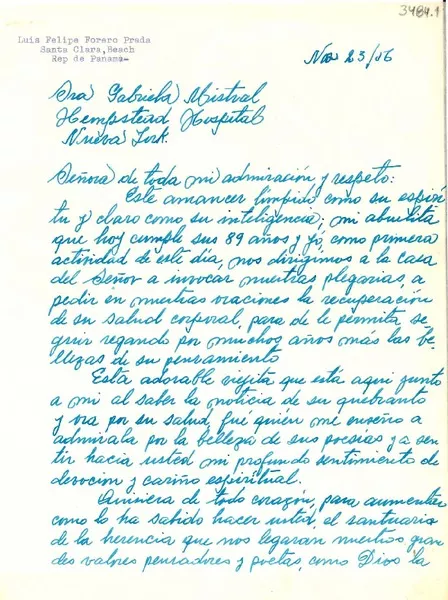 3484.1
Luis Felipe Forero Prada
Santa Clara, Beach
Rep de Panama-
Nov 23/56
Sra Gabriela Mistral
Hempstead Hospital
Nueva York.
Señora de toda mi admiración y respeto:
Este amanecer límpido como su espiri
tu y claro como su inteligencia; mi abuelita
que hoy cumple sus 89 años y yó, como primera
actividad de este día, nos dirigimos a la casa
del Señor a invocar nuestras plegarias, a
pedir en nuestras oraciones la recuperación
de su salud corporal, para de le permita se
guir regando por muchos años más las be-
llezas de su pensamiento
Esta adorable viejita que está aqui junto
a mi al saber la noticia de su quebranto
y ora por su salud, fue quién me enseño a
admirála por la belleza de sus poesias y a sen
tir hacia usted mi profundo sentimiento de
devocion y cariño espiritual.
Quisiera de todo corazón, para aumentar
como lo ha sabido hacer usted, el santuario
de la herencia que nos legaran nuestros gran
des valores pensadores y poetas, como Dios la